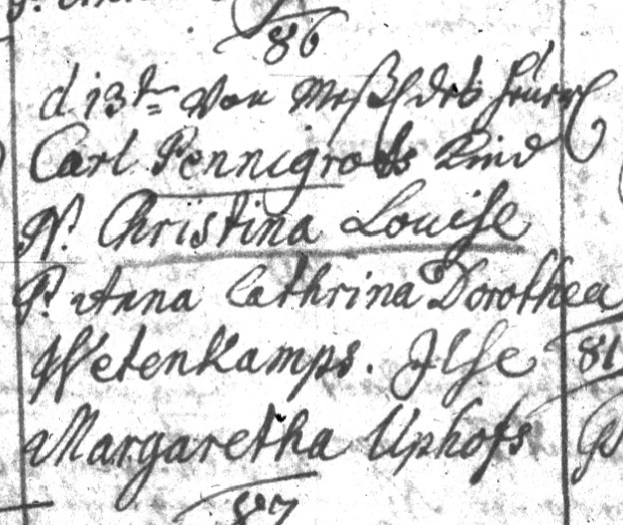 86
d 13t von des
Carl Pennigrods Kind
N. Christina Louise
P. Anna Cathrina Dorothea
Wetenkamps. Ilse
81
Margaretha Uphofs
87